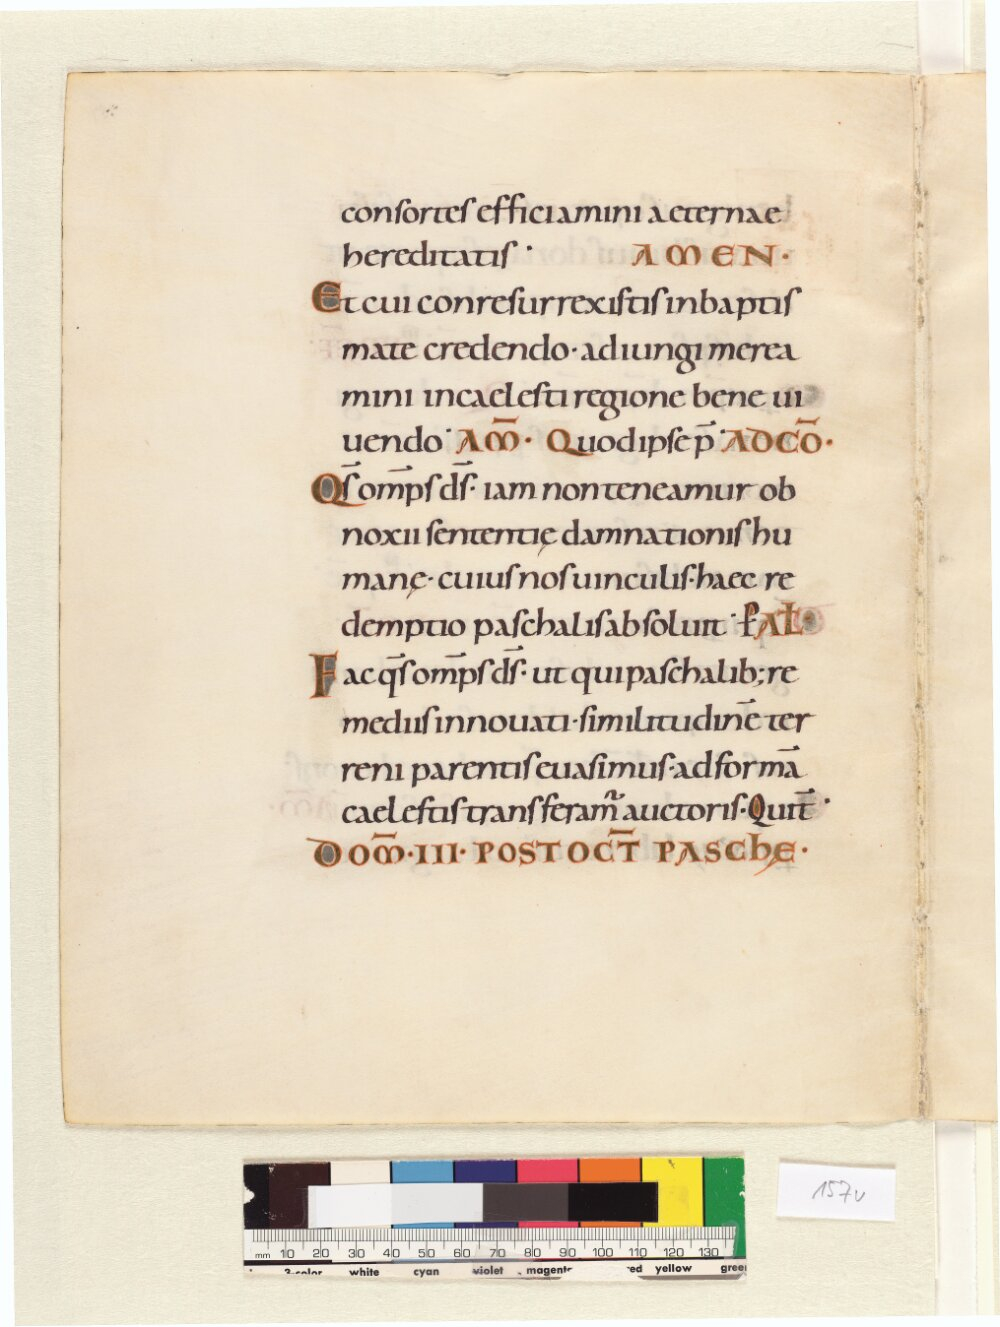 consortes efficiamini aeternae
hereditatis · AMEN·
Et cui conresurrexistis in baptis
mate credendo· adiungi merea
mini in caelesti regione bene ui
uendo· AM̄· Quod ipse p̄· AD CŌ·
Qs̄ om̄ps ds̄· iam non teneamur ob
noxii sententię damnationis hu
manę· cuius nos uinculis· haec re
demptio paschalis absoluit· AL·
Fac qs̄ om̄ps ds̄· ut qui paschalib; re
mediis innouati· similitudinē ter
reni parentis euasimus· ad formā
caelestis transferam̄ auctoris· Qui t̄·
DOM̄· III· POST OCT̄ PASCHĘ·
157v
mm 10 20 30 40 50 60 70 80 90 100 110 120 130
3-color white cyan violet magent red yellow green